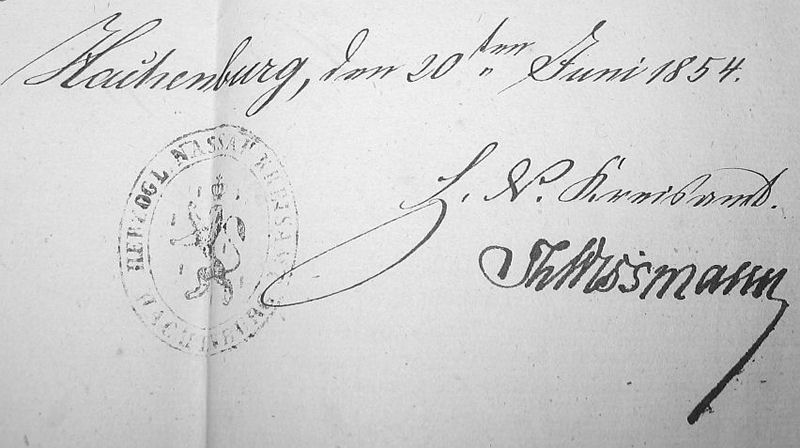 Hachenburg, den 20ten Juni 1854.
HERZOGL. NASSAU. KREISAMT
HACHENBURG
H. N. Kreisamt.